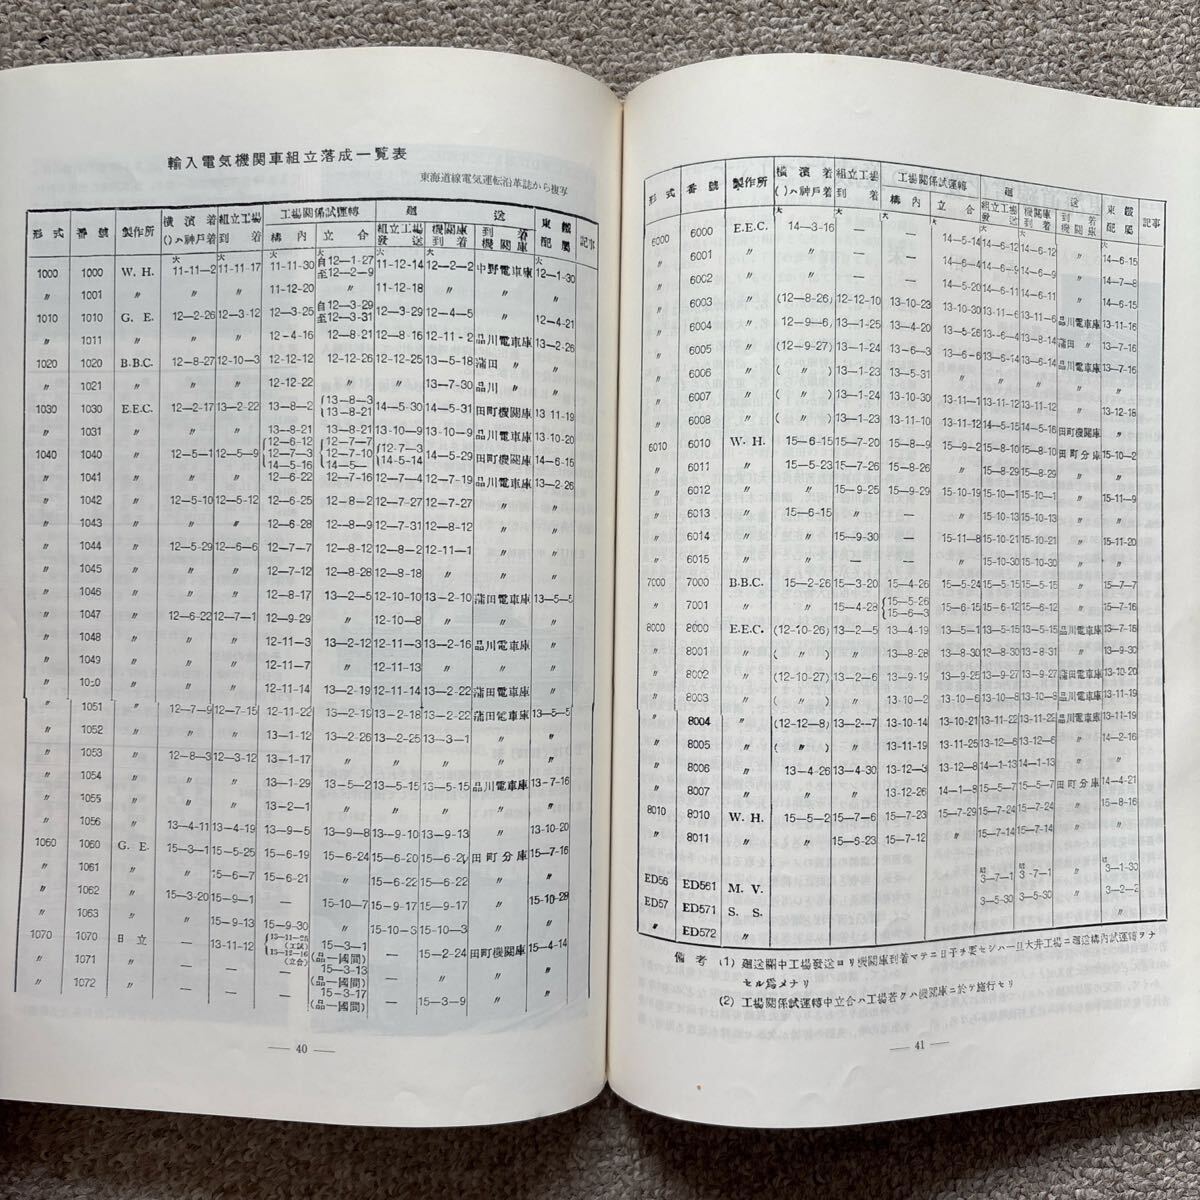 輸入電気機関車組立落成一覧表
東海道線電気運転沿革誌から複写
形式 番號 製作所 横濱着 ()ハ神戸着 組立工場到着 工場關係試運轉 構内 立合 廻送 組立工場發送 機関庫到着 到着機關庫 東鐵配属 記事
1000 1000 W. H. 大11-11—2 大11-11-17 大11-11-30 自大12—1-27 至12—2—9 大12-11-14 大12—2—2 中野電車庫 大12—1-30
〃 1001 〃 〃 〃 11-12-20 〃 11-12-18 〃 〃 〃
1010 1010 G. E. 12—2-26 12—3-12 12—3-25 自12—3-29 至12—3-31 12—3-29 12—4—5 〃 12—4-21
〃 1011 〃 〃 〃 12—4-16 12—8-21 12—8-16 12-11-2 品川電車庫 13—2-26
1020 1020 B.B.C. 12—8-27 12-10—3 12-12-12 12-12-26 12-12-25 13—5-18 蒲田 〃 〃
〃 1021 〃 〃 〃 12-12-22 〃 〃 13—7-30 品川 〃 〃
1030 1030 E.E.C. 12—2-17 13—2-22 13—8—2 13—8—3 13—8-21 14—5-30 14—5-31 田町機關庫 13 11-19
〃 1031 〃 〃 〃 13—8-21 13—8-21 13-10—9 13-10—9 品川電車庫 13-10-20
1040 1040 〃 12—5—1 12—5—9 12—6-12 12—7—3 14—5-16 12—7—7 12—7-10 14—5— 12-7—3 14-5-14 14—5-29 田町機關庫 14—6-16
〃 1041 〃 〃 〃 12—6-22 12—7-16 12—7—4 12—7-19 品川電車庫 13—2-26
〃 1042 〃 12—5-10 12—5-12 12—6-25 12—8—2 12—7-27 12—7-27 〃 〃
〃 1043 〃 〃 〃 12—6-28 12—8—9 12—7-31 12—8-12 〃 〃
〃 1044 〃 12—5-29 12—6—6 12—7—7 12—8-12 12—8—2 12-11—1 〃 〃
〃 1045 〃 〃 〃 12—7-12 12—8-28 12—8-18 〃 〃 〃
〃 1046 〃 〃 〃 12—8-17 13—2—5 12-10-10 13—2-10 蒲田電車庫 13—5—5
〃 1047 〃 12—6-22 12—7—1 12—9-29 〃 12-10—8 〃 〃 〃
〃 1048 〃 〃 〃 12-11—3 13—2-12 12-11—3 13—2-16 品川電車庫 〃
〃 1049 〃 〃 〃 12-11—7 〃 12-11-13 〃 〃 〃
〃 1050 〃 〃 〃 12-11-14 13—2-19 12-11-14 13—2-22 蒲田電車庫 〃
〃 1051 〃 12—7—9 12—7-15 12-11-22 13—2-19 13—2-18 13—2-22 蒲田電車庫 13—5—5
〃 1052 〃 〃 〃 13—1-12 13—2-26 13—2-25 13—3—1 〃 〃
〃 1053 〃 12—8—3 12—3-12 13—1-17 〃 〃 〃 〃 〃
〃 1054 〃 〃 〃 13—1-29 13—5—2 13—5-15 13—5-15 品川電車庫 13—7-16
〃 1055 〃 〃 〃 13—2—1 〃 〃 〃 〃 〃
〃 1056 〃 13—4-11 13—4-19 13—9—5 13—9—8 13—9-10 13—9-13 〃 13-10-20
1060 1060 G. E. 15—3—1 15—5-25 15—6-19 15—6-24 15—6-20 15—6-20 田町分庫 15—7-16
〃 1061 〃 〃 15—6—7 15—6-21 〃 15—6-22 15—6-22 〃 〃
〃 1062 〃 15—3-20 15—9—1 — 15-10—7 15—9-17 15—9-17 〃 15-10-28
〃 1063 〃 〃 15—9-13 15—9-30 〃 15-10—3 15-10—3 〃 〃
1070 1070 日立 — 13-11-12 13-11-26 (工試) 13-12-16 (立合) 15—3—1 (品—國間) — 15—2-24 田町機關庫 15—4-14
〃 1071 〃 — 〃 — 15—3-13 (品—國間) — 〃 〃 〃
〃 1072 〃 — 〃 — 15—3-17 (品—國間) — 15—3—9 〃 〃
— 40 —
形式 番號 製作所 横濱着 ()ハ神戸着 組立工場到着 工場關係試運轉 構内 立合 廻送 組立工場發送 機関庫到着 到着機關庫 東鐵配属 記事
6000 6000 E.E.C. 大14—3-16 大— 大— 大14—5-14 大14—6-12 大14—6-12 〃 大14—6-15
〃 6001 〃 〃 — — 14—6—4 14—6—9 14—6—9 〃 14—7—8
〃 6002 〃 〃 — — 14—5-20 14—6-11 14—6-11 〃 14—6-15
〃 6003 〃 (12—8-26) 12-12-10 13-10-23 13-10-30 13-11—6 13-11—6 品川電車庫 13-11-16
〃 6004 〃 (12—9—6) 13—1-25 13—4-20 13—5-26 13—6—4 13—8-14 蒲田 〃 13—7-16
〃 6005 〃 (12—9-27) 13—1-24 13—6—3 13—6—6 13—6-14 13—6-14 品川電車庫 13—7-16
〃 6006 〃 (〃) 13—1-23 13—5-31 〃 〃 〃 〃 〃
〃 6007 〃 (〃) 13—1-24 13-10-30 13-11—1 13-11-12 13-11-12 〃 13-12-18
〃 6008 〃 (〃) 13—1-23 13-11-10 13-11-12 14—5-15 14—5-16 田町機關庫 〃
6010 6010 W. H. 15—6-15 15—7-20 15—8—9 15—9—2 15—8-10 15—8-10 田町分庫 15-10—2
〃 6011 〃 15—5-23 15—7-26 15—8-26 〃 15—8-29 15—8-29 〃 〃
〃 6012 〃 〃 15—9-25 15—9-29 15-10-19 15-10—1 15-10—1 〃 15-11—9
〃 6013 〃 15—6-15 〃 — 〃 15-10-13 15-10-13 〃 〃
〃 6014 〃 〃 15—9-30 — 15-11—8 15-10-21 15-10-21 〃 15-11-20
〃 6015 〃 〃 — — 〃 15-10-30 15-10-30 〃 〃
7000 7000 B.B.C. 15—2-26 15—3-20 15—4-26 15—5-24 15—5-15 15—5-15 〃 15—7—7
〃 7001 〃 〃 15—4-28 15—5-26 15—6—3 15—6-15 15—6-12 15—6-12 〃 15—7-16
8000 8000 E.E.C. (12-10-26) 13—2—5 13—4-19 13—5—1 13—5-15 13—5-15 品川電車庫 13—7-16
〃 8001 〃 (〃) 〃 13—8-28 13—8-30 13—8-31 13—9-30 〃 〃
〃 8002 〃 (12-10-27) 13—2—6 13—9-19 13—9-25 13—9-27 13—9-27 蒲田電車庫 13-10-20
〃 8003 〃 (〃) 〃 13-10—2 13-10—6 13-10—8 13-10—8 品川電車庫 13-11-19
〃 8004 〃 (12-12—8) 13—2—7 13-10-14 13-10-21 13-11-22 13-11-22 品川電車庫 13-11-19
〃 8005 〃 (〃) 〃 13-11-19 13-11-25 13-12—6 13-12—6 〃 14—2-16
〃 8006 〃 13—4-26 13—4-30 13-12—3 13-12—8 14—1-13 14—1-13 〃 〃
〃 8007 〃 〃 〃 13-12-26 14—1—8 15—5—7 15—5—7 田町分庫 14—4-21
8010 8010 W. H. 15—5—2 15—7—6 15—7-23 15—7-29 15—7-24 15—7-24 〃 15—8-16
〃 8011 〃 〃 15—6-23 15—7-12 〃 15—7-14 15—7-14 〃 〃
ED56 ED561 M. V. 昭3—7—1 昭3-7—1 〃 昭3—1-30
ED57 ED571 S. S. 3—5-30 3—5-30 〃 3—2—2
〃 ED572 〃 〃 〃 〃 〃
備考 (1) 廻送關中工場發送ヨリ機關庫到着マテニ日子ヲ要セシハ一旦大井工場ニ廻送構内試運轉ヲナ
セル爲メナリ
(2) 工場關係試運轉中立合ハ工場若クハ機關庫ニ於テ施行セリ
— 41 —